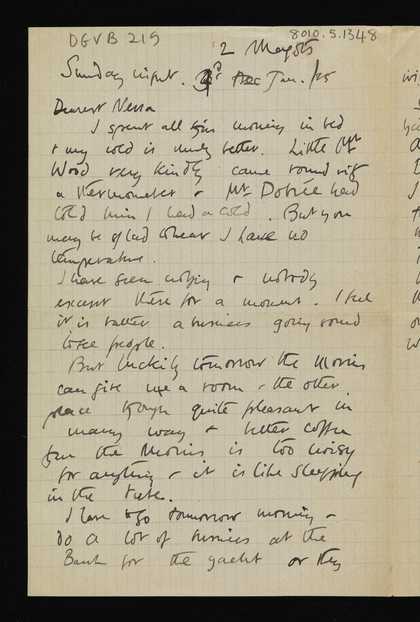 DGVB 219
8010.5.1348
2 Magots
Sunday night. 3rd Dec Jan. /25
Dearest Nessa
I spent all this morning in bed
& my cold is much better. Little Mr
Wood very kindly came round with
a thermometer & Mr Dobrée had
told him I had a cold. But you
may be glad to hear I have no
temperature.
I have seen nothing & nobody
except these for a moment. I feel
it is rather a business going round
to see people.
But luckily tomorrow the Morris
can give me a room & the other
place though quite pleasant in
many ways & better coffee
than the Morris is too noisy
for anything & it is like sleeping
in the Tube.
I have to go tomorrow morning &
do a lot of business at the
Bank for the yacht or they